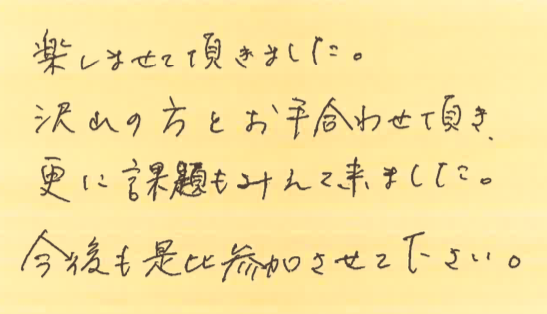 楽しませて頂きました。
沢山の方とお手合わせ頂き、
更に課題もみえて来ました。
今後も是比参加させて下さい。